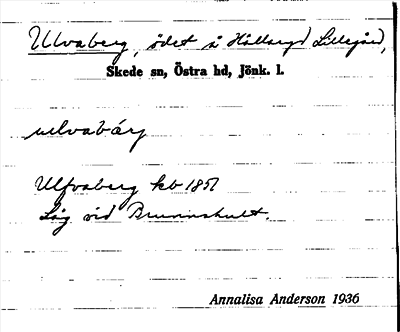 Ulvaberg, ödet å Hållsryd Lillegård,
Skede sn, Östra hd, Jönk. l.
ulvabärj
Ulfvaberg kb 1851
Låg vid Brunnshult.
Annalisa Anderson 1936